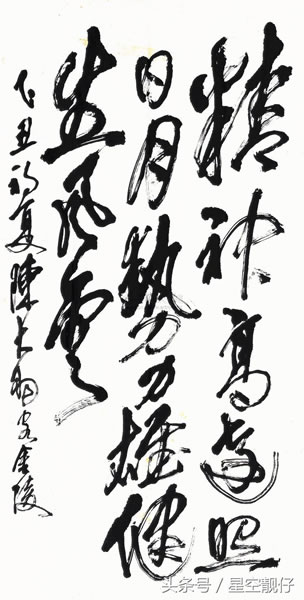 精神高遠照
日月勢力雄健
生風雲
乙丑初夏陳大羽客金陵
头条号 / 星空靓仔